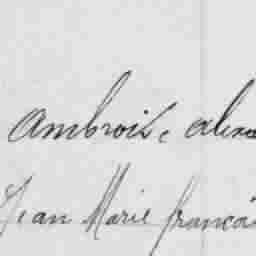 Ambroise, alexa
Jean Marie françoi